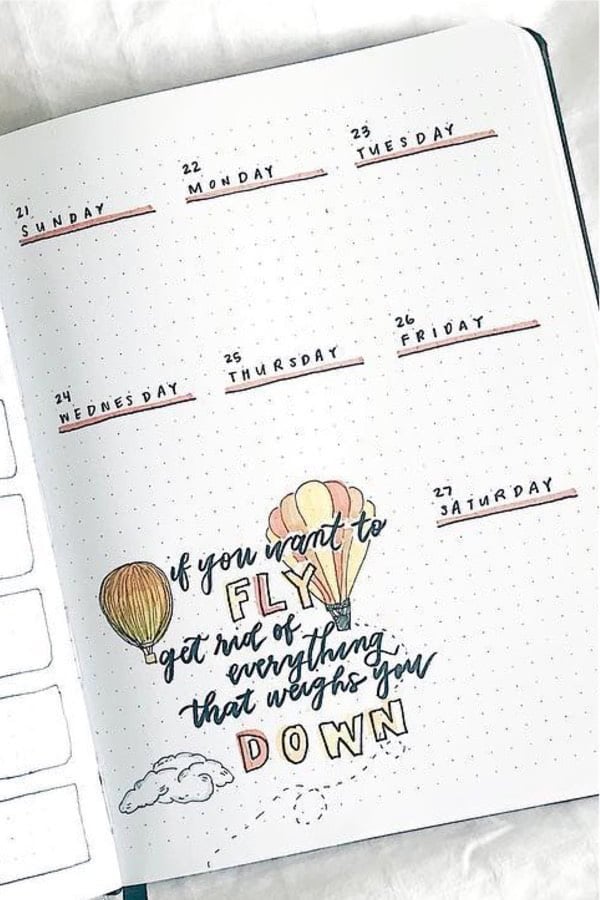 21
SUNDAY
22
MONDAY
23
TUESDAY
24
WEDNESDAY
25
THURSDAY
26
FRIDAY
27
SATURDAY
if you want to
FLY
get rid of
everything
that weighs you
DOWN